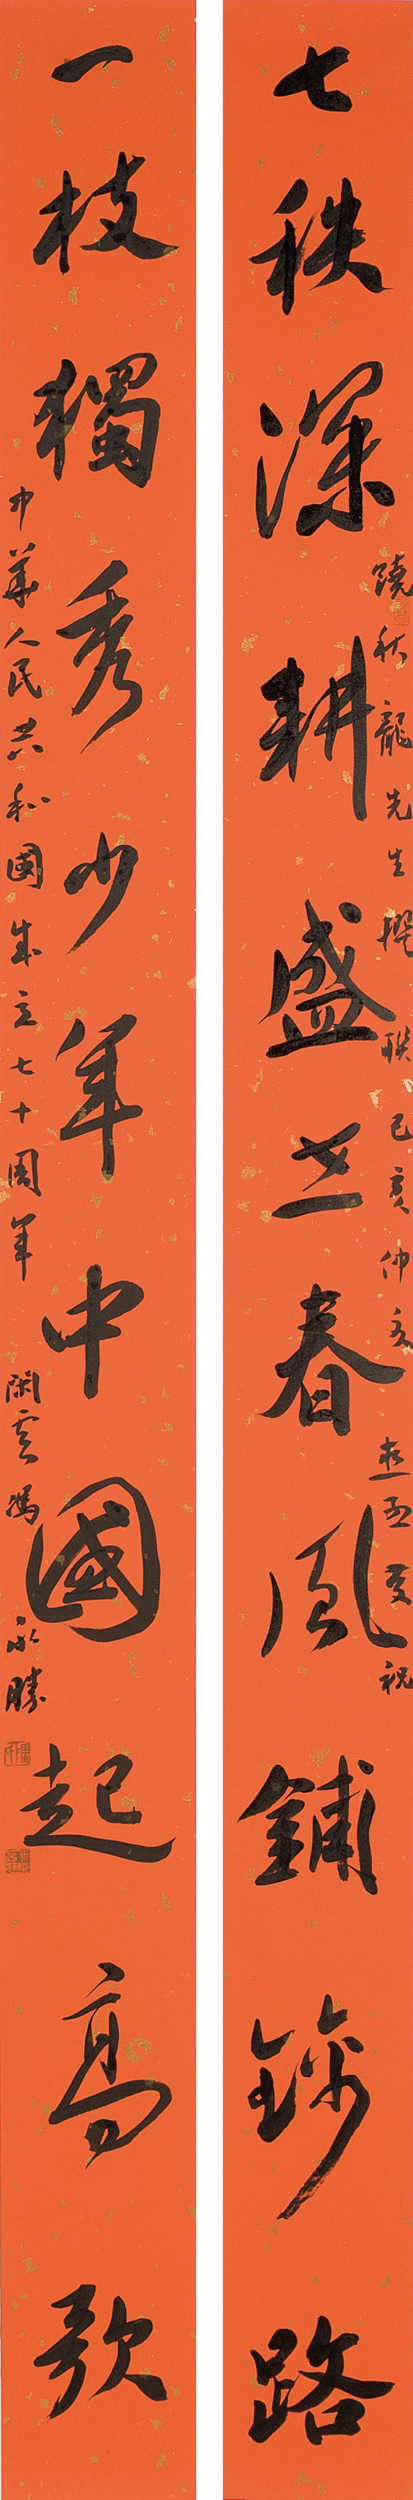 七秩深耕盛世春風鋪路
秋龍先生撰聯 己亥仲夏 祝
一枝獨秀少年中國起高歌
中華人民共和國成立七十周年 閑雲馮永勝